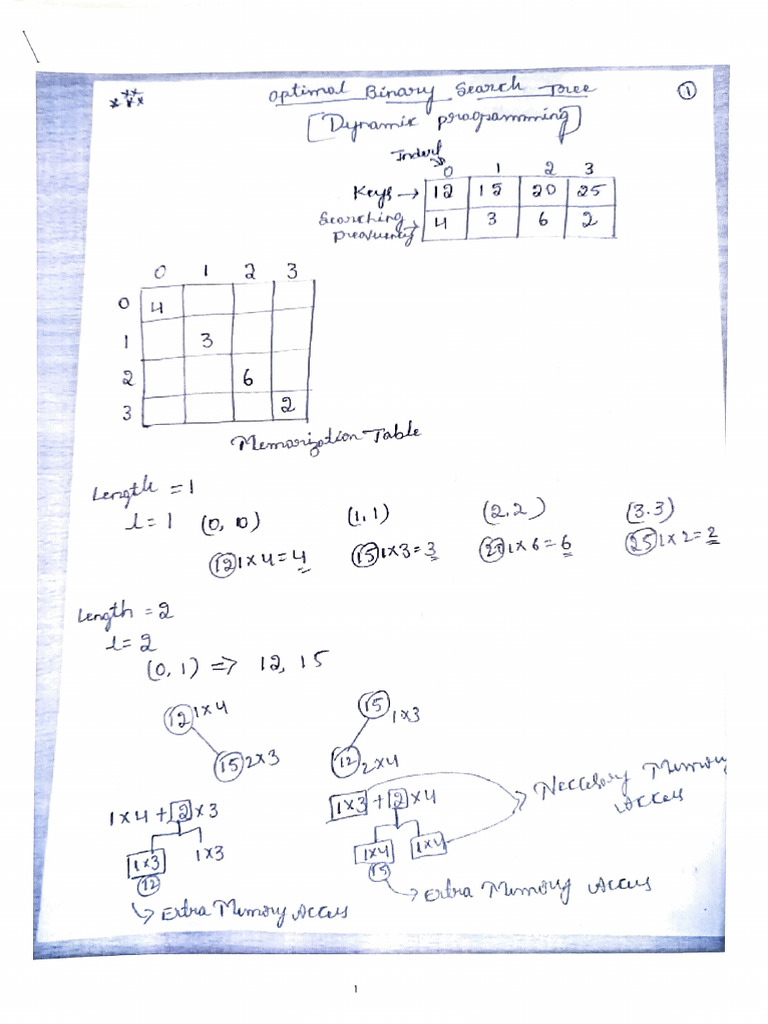 Optimal Binary Search Tree
①
[Dynamic programming]
Index
0 1 2 3
Keys → 12 15 20 25
Searching frequency → 4 3 6 2
0 1 2 3
0 4
1 3
2 6
3 2
Memorization Table
Length = 1
l = 1 (0, 0) (1, 1) (2, 2) (3.3)
12 1×4 = 4 15 1×3 = 3 20 1×6 = 6 25 1×2 = 2
Length = 2
l = 2
(0, 1) => 12, 15
12 1×4 15 1×3
15 2×3 12 2×4
1×4 + 2×3 1×3 + 2×4 Neccesory Memory Access
1×3 1×3 1×4 1×4
12 15
Extra Memory Access Extra Memory Access
1